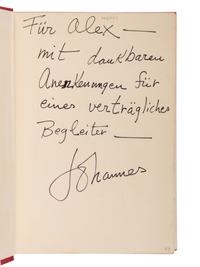 Für Alex —
mit dankbaren
Anerkennungen für
eines verträgliches
Begleiter —
Johannes